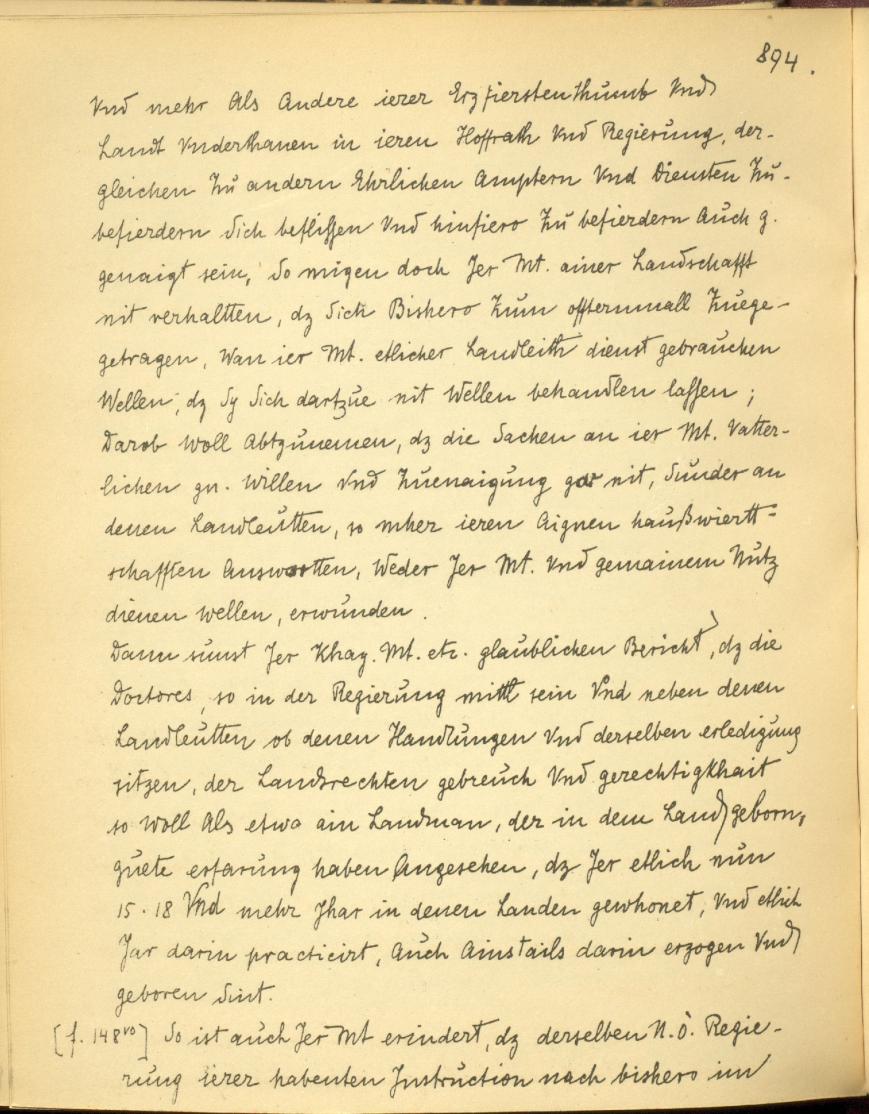 894.
Vnd mehr Als Andere ierer Erzfierstenthumb Vnd
Landt Vnderthanen in ieren Hoffrath Vnd Regierung, der-
gleichen Zu andern Ehrlichen Amptern Vnd Diensten Zu-
befierdern Sich beflissen Vnd hinfiero Zu befierdern Auch g.
genaigt sein, So migen doch Jer Mt. ainer Landschafft
nit verhaltten, dz Sich Bishero Zum offternmall Zuege-
getragen, Wan ier Mt. etlicher Landleith dienst gebrauchen
Wellen, dz Sy Sich dartzue nit Wellen behandlen lassen;
Darob Woll Abtzunemen, dz die Sachen an ier Mt. Vatter-
lichen gn. Willen Vnd Zuenaigung gar nit, Sunder an
denen Landleutten, so mher ieren Aignen haußwiertt-
schafften Auswartten, Weder Jer Mt. Vnd gemainem Nutz
dienen wellen, erwunden.
Dann sunst Jer Khay. Mt. etc. glaublichen Bericht, dz die
Doctores, so in der Regierung mittl sein Vnd neben denen
Landleutten ob denen Handlungen Vnd derselben erledigung
sitzen, der Landsrechten gebreuch Vnd gerechtigKhait
so Woll Als etwo ain Landman, der in dem Land geborn,
guete erfarung haben Angesehen, dz Jer etlich nun
15. 18 Vnd mehr Jhar in denen Landen gewhonet, Vnd etlich
Jar darin practicirt, Auch Ainstails darin erzogen Vnd
geboren Sint.
[f. 148vo] So ist auch Jer Mt erindert, dz derselben N. Ö. Regie-
rung ierer habenten Instruction nach bishero im